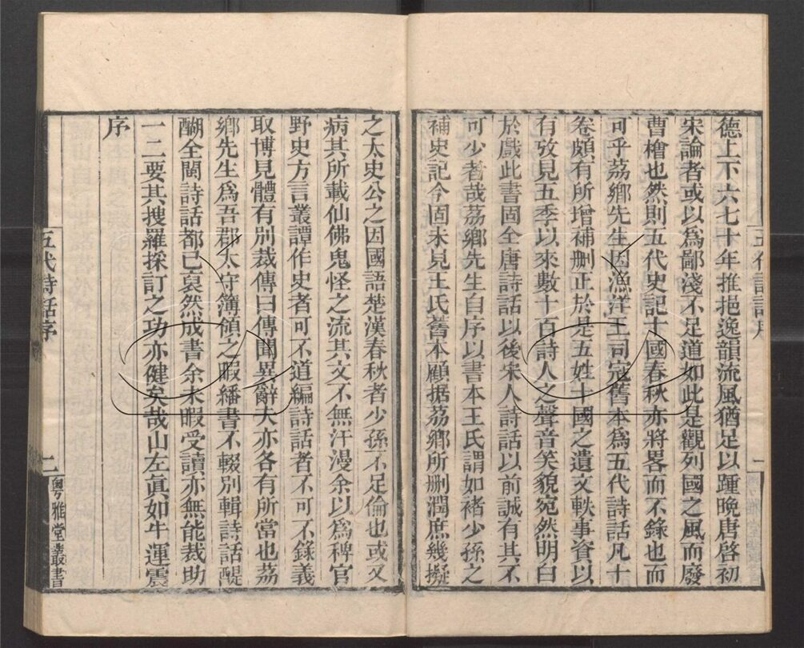 德上下六七十年推挹逸韻流風猶足以踵晚唐啓初
宋論者或以爲鄙淺不足道如此是觀列國之風而廢
曹檜也然則五代史記十國春秋亦將畧而不錄也而
可乎荔鄉先生因漁洋王司寇舊本爲五代詩話凡十
卷頗有所增補刪正於是五姓十國之遺文軼事資以
有攷見五季以來數十百詩人之聲音笑貌宛然明白
於戲此書固全唐詩話以後宋人詩話以前誠有其不
可少者哉荔鄉先生自序以書本王氏謂如褚少孫之
補史記今固未見王氏舊本顧据荔鄉所刪潤庶幾擬
五代詩話序
一
粤雅堂叢書
之太史公之因國語楚漢春秋者少孫不足倫也或又
病其所載仙佛鬼怪之流其文不無汗漫余以爲稗官
野史方言叢譚作史者可不道編詩話者不可不錄義
取博見體有別裁傳曰傳聞異辭大亦各有所當也荔
鄉先生爲吾郡太守簿領之暇繙書不輟別輯詩話醍
醐全閩詩話都已裒然成書余未暇受讀亦無能裁助
一二要其搜羅採訂之功亦健矣哉山左眞如牛運震
序
五代詩話序
二
粤雅堂叢書